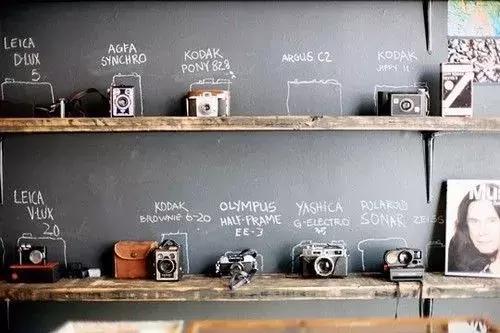 LEICA
D-LUX
5
AGFA
SYNCHRO
KODAK
PONY 828
ARGUS C2
KODAK
JIFFY 11
LEICA
V-LUX
20
KODAK
BROWNIE 6-20
OLYMPUS
HALF-FRAME
EE-3
YASHICA
G-ELECTRO
35
POLAROID
SONAR
ZEISS